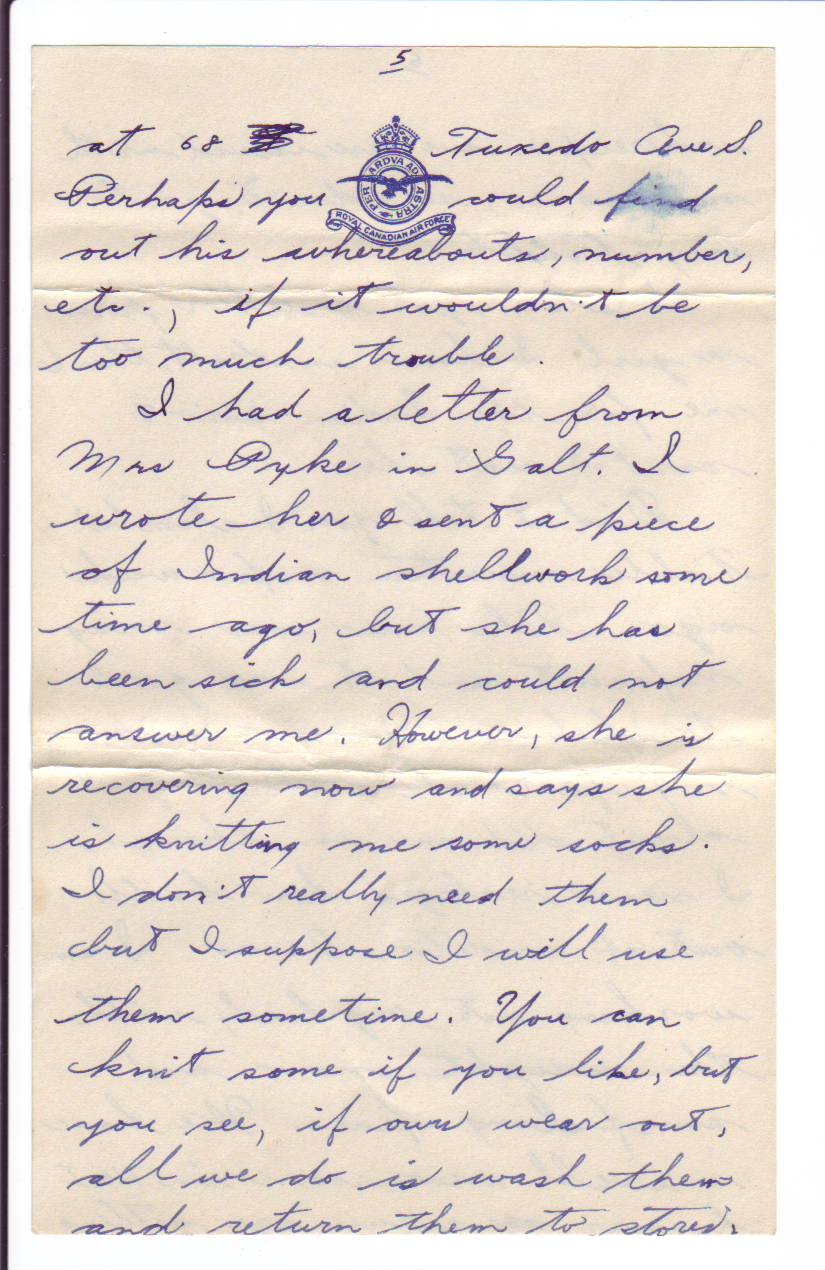 5
at 68 Tuxedo Ave S.
PER ARDVA AD ASTRA
ROYAL CANADIAN AIR FORCE
Perhaps you could find
out his whereabouts, number,
etc., if it wouldn't be
too much trouble.
I had a letter from
Mrs Pyke in Galt. I
wrote her & sent a piece
of Indian shellwork some
time ago, but she has
been sick and could not
answer me. However, she is
recovering now and says she
is knitting me some socks.
I don't really need them
but I suppose I will use
them sometime. You can
knit some if you like, but
you see, if ours wear out,
all we do is wash them
and return them to stores,